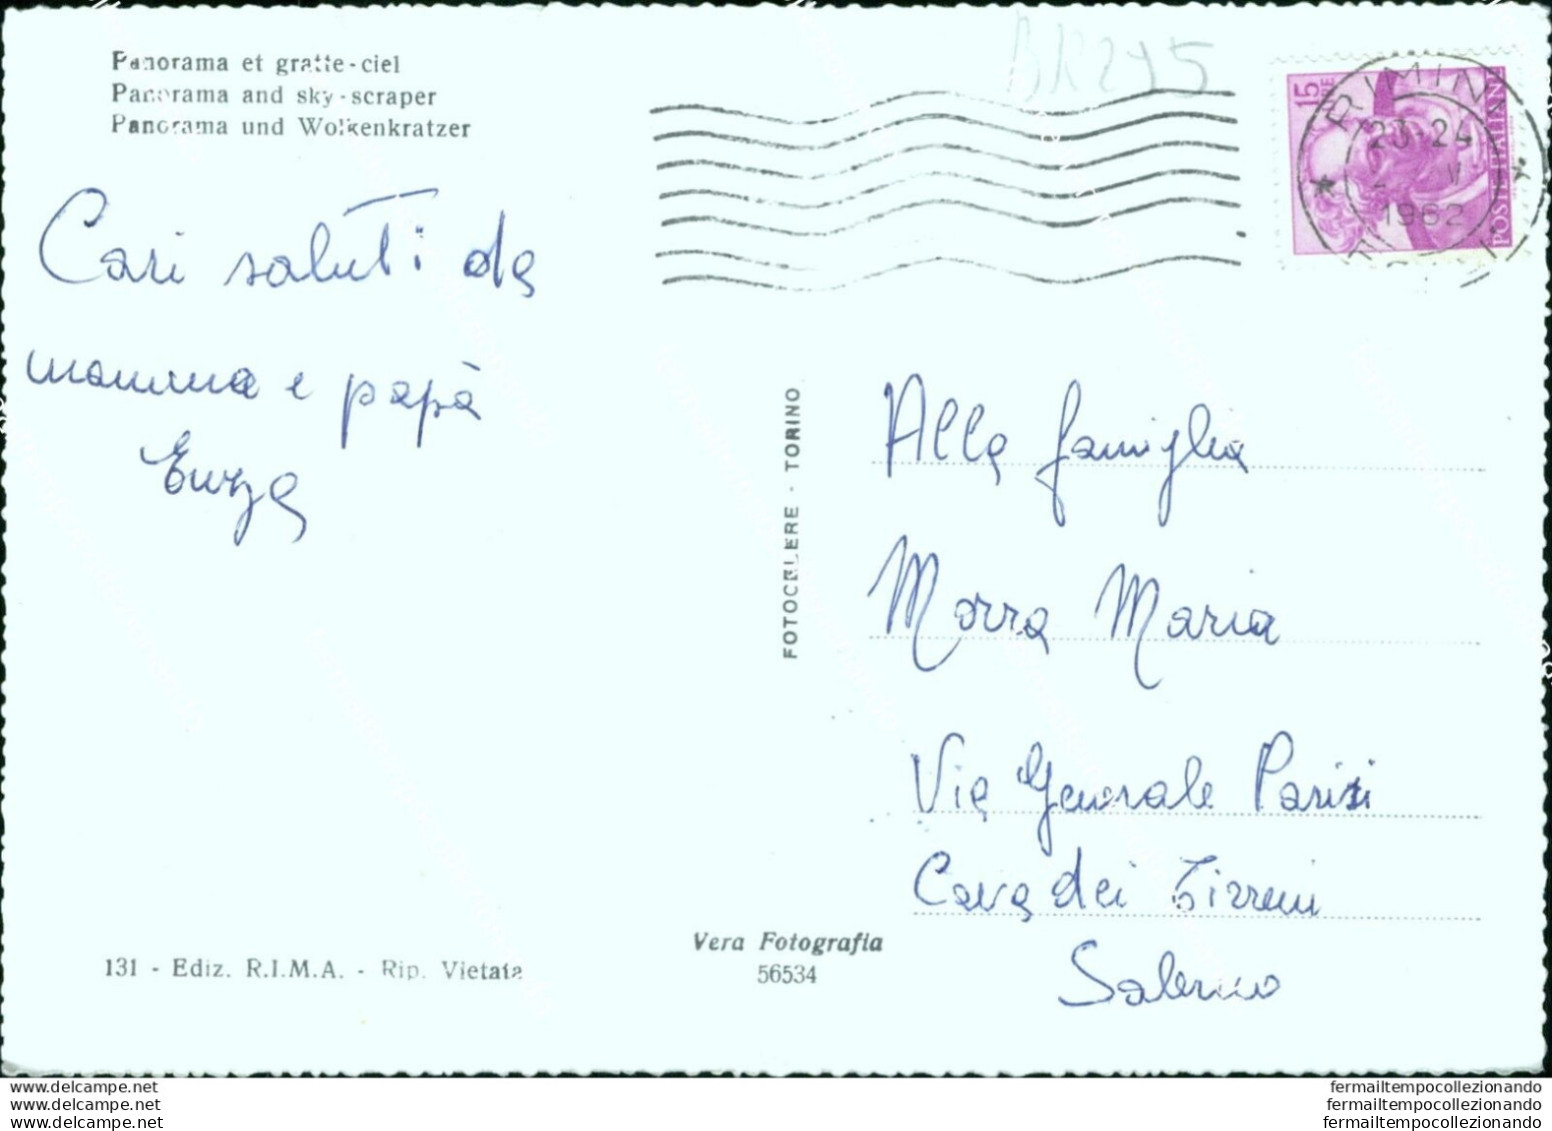 Panorama et gratte-ciel
Panorama and sky-scraper
Panorama und Wolkenkratzer
BR245
15
POSTE ITALIANE
RIMINI
23-24
V
1962
Cari saluti da
mamma e papà
Enza
FOTOCELERE - TORINO
Alla famiglia
Morra Maria
Via Generale Parisi
Cava dei Tirreni
Salerno
Vera Fotografia
56534
131 - Ediz. R.I.M.A. - Rip. Vietata
www.delcampe.net
www.delcampe.net
www.delcampe.net
fermailtempocollezionando
fermailtempocollezionando
fermailtempocollezionando